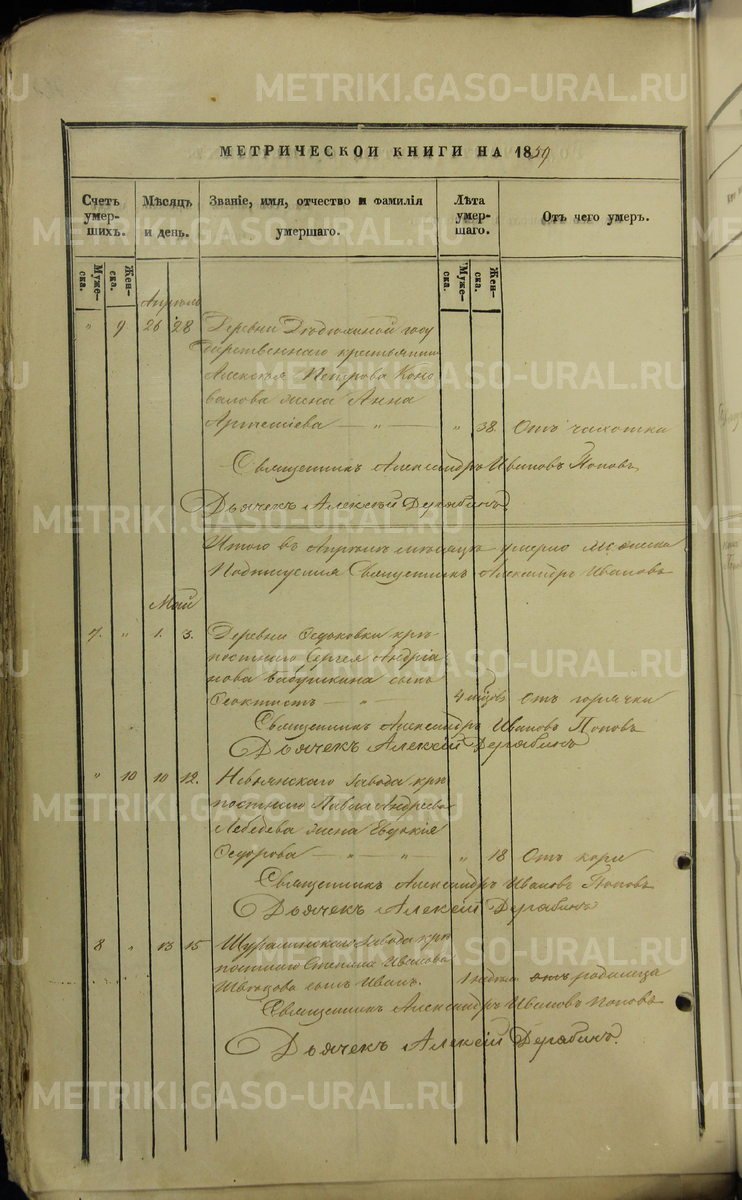 METRIKI.GASO-URAL.RU
МЕТРИЧЕСКОЙ КНИГИ НА 1859
Счетъ умершихъ.
Мѣсяцъ и день.
Званіе, имя, отчество и фамилія умершаго.
Лѣта умершаго.
Отъ чего умеръ.
Мужеска.
Женска.
Мужеска.
Женска.
Апрѣль
" 9 26 28 Деревни госу
дарственнаго крестьянина
Алексѣя Петрова Коно
валова жена Анна
Артемьева — " — " 38 Отъ чахотки
Священникъ Александръ Ивановъ Поповъ
Дьячекъ Алексѣй Дерябинъ
Итого въ Апрѣлѣ мѣсяцѣ умерло
Священникъ Александръ Ивановъ
Май
7. " 1. 3. Деревни Ѳедьковки крѣ
постнаго Сергея Андрія
нова Бабушкина сынъ
Ѳеоктистъ — " — 4 мѣсяцовъ Отъ горячки
Священникъ Александръ Ивановъ Поповъ
Дьячекъ Алексѣй Дерябинъ
" 10 10 12. Невьянскаго завода крѣ
постнаго Павла Андреева
Лебедева жена Евдокія
Ѳедорова — " — " — " 18 Отъ кори
Священникъ Александръ Ивановъ Поповъ
Дьячекъ Алексѣй Дерябинъ
8 " 13 15 Шуралинскаго завода крѣ
постнаго Степана Иванова
Швецова сынъ Иванъ. 1 недѣли отъ родимца
Священникъ Александръ Ивановъ Поповъ
Дьячекъ Алексѣй Дерябинъ.